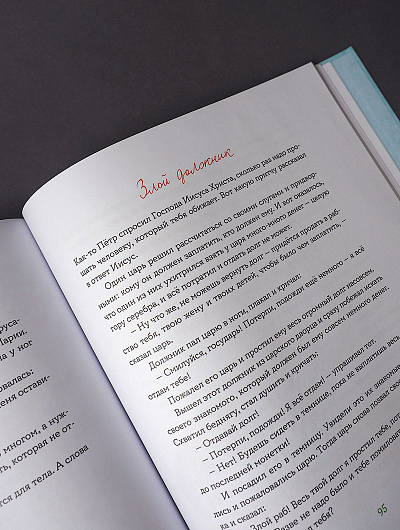 руса-
Марии.
а у ног
валась;
меня остави-
многом, а нуж-
ть, которая не от-
тся для тела. А слова
Злой должник
Как-то Пётр спросил Господа Иисуса Христа, сколько раз надо про-
щать человеку, который тебя обижает. Вот какую притчу рассказал
в ответ Иисус.
Один царь решил рассчитаться со своими слугами и придвор-
ными: кому он должен заплатить, кто должен ему. И вот оказалось,
что один из них ухитрился взять у царя много-много денег – целую
гору серебра, и всё потратил и отдать долг не может.
– Ну что же, не можешь вернуть долг – придётся продать в раб-
ство тебя, твою жену и твоих детей, чтобы было чем заплатить, –
сказал царь.
Должник пал царю в ноги, плакал и кричал:
– Смилуйся, государь! Потерпи, подожди ещё немного – я всё
отдам тебе!
Пожалел его царь и простил ему весь огромный долг насовсем.
Вышел этот должник из царского дворца и сразу побежал искать
своего знакомого, который должен был ему совсем немного денег.
Схватил беднягу, стал душить и кричать:
– Отдавай долг!
– Потерпи, подожди! Я всё отдам! – упрашивал тот.
– Нет! Будешь сидеть в темнице, пока не выплатишь весь
до последней монетки!
И посадил его в темницу. Увидели это их знакомые,
лись и пожаловались царю. Тогда царь снова позвал
ка и сказал:
– Злой раб! Весь твой долг я простил тебе,
Разве не надо было и тебе помиловать
тебя?
95